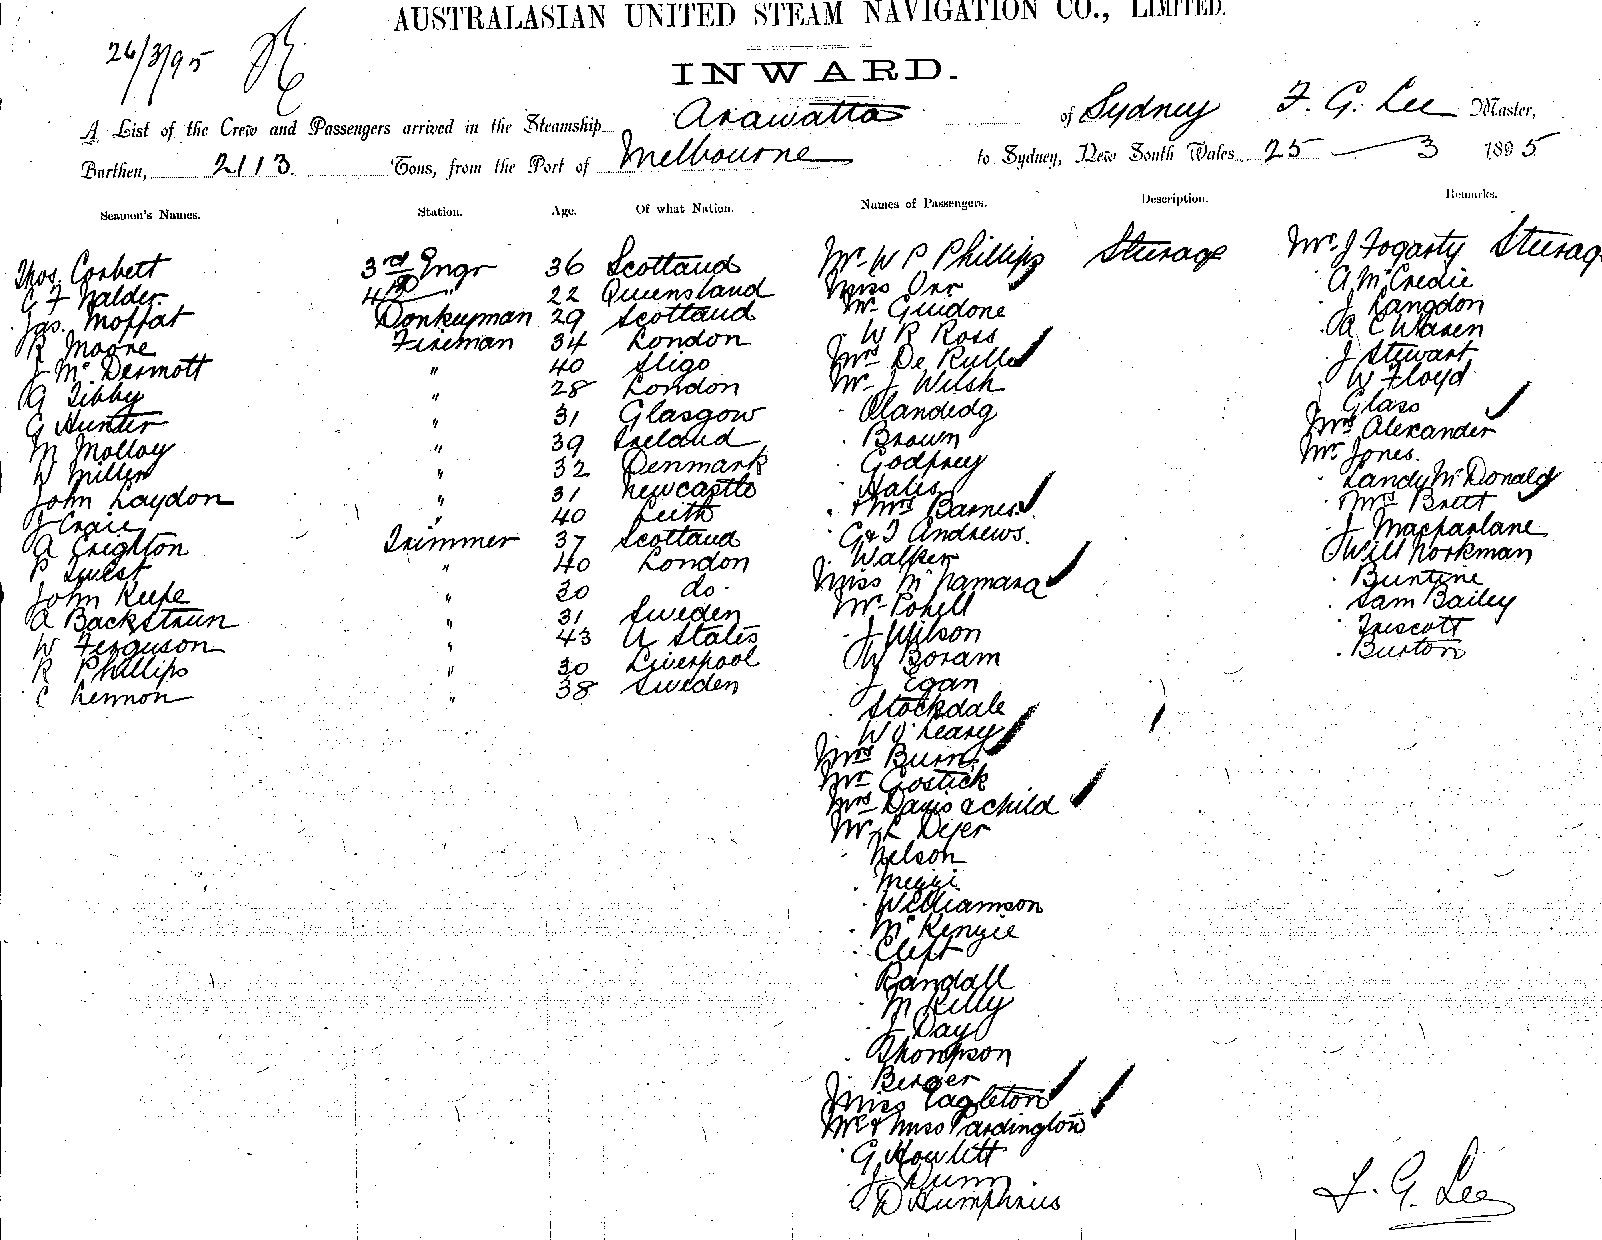 AUSTRALASIAN UNITED STEAM NAVIGATION CO., LIMITED.
26/3/95
INWARD.
A List of the Crew and Passengers arrived in the Steamship Arawatta of Sydney F. G. Lee Master,
Burthen, 2113 Tons, from the Port of Melbourne to Sydney, New South Wales 25 3 1895
Seamen's Names. Station. Age. Of what Nation. Names of Passengers. Description. Remarks.
Thos. Corbett 3rd Engr 36 Scotland
C F Nalder 4th " 22 Queensland
Jas. Moffat Donkeyman 29 Scotland
R Moore Fireman 34 London
J McDermott " 40 Sligo
G Tibby " 28 London
G Hunter " 31 Glasgow
M Molloy " 39 Ireland
W Miller " 32 Denmark
John Laydon " 31 Newcastle
J Craig " 40 Leith
A Crighton Trimmer 37 Scotland
P Guest " 40 London
John Keefe " 30 do.
A Backstrun " 31 Sweden
W Ferguson " 43 U States
R Phillips " 30 Liverpool
C Lennon " 38 Sweden
Mr. W P Phillips Steerage
Miss Orr
Mr. Guidone
" W R Ross
Mrs De Rulle
Mr. J Wilsh
" Olandedg
" Brown
" Godfrey
" Hales
" & Mrs Barnes
" C & T Andrews.
" Walker
Miss McNamara
Mr. Powell
" J Wilson
" W Boram
" J Egan
" Stockdale
" W O'Leary
Mrs Burns
Mr Costick
Mrs Davis & child
Mr. L Dyer
" Nelson
" Meggi
" Williamson
" McKenzie
" Clift
" Randall
" M Kelly
" J Day
" Thompson
" Berger
Miss Eagleton
Mr & Miss Pardington
" G Howlett
" J Dunn
" D Humphries
Mr. J Fogarty Steerage
" A McCredie
" J Langdon
" A C Waren
" J Stewart
" W Floyd
" Glass
Mrs Alexander
Mr. Jones.
" Landy McDonald
" Mrs Brett
" J Macfarlane
" Will Workman
" Buntine
" Sam Bailey
" Triscott
" Burton
F. G. Lee